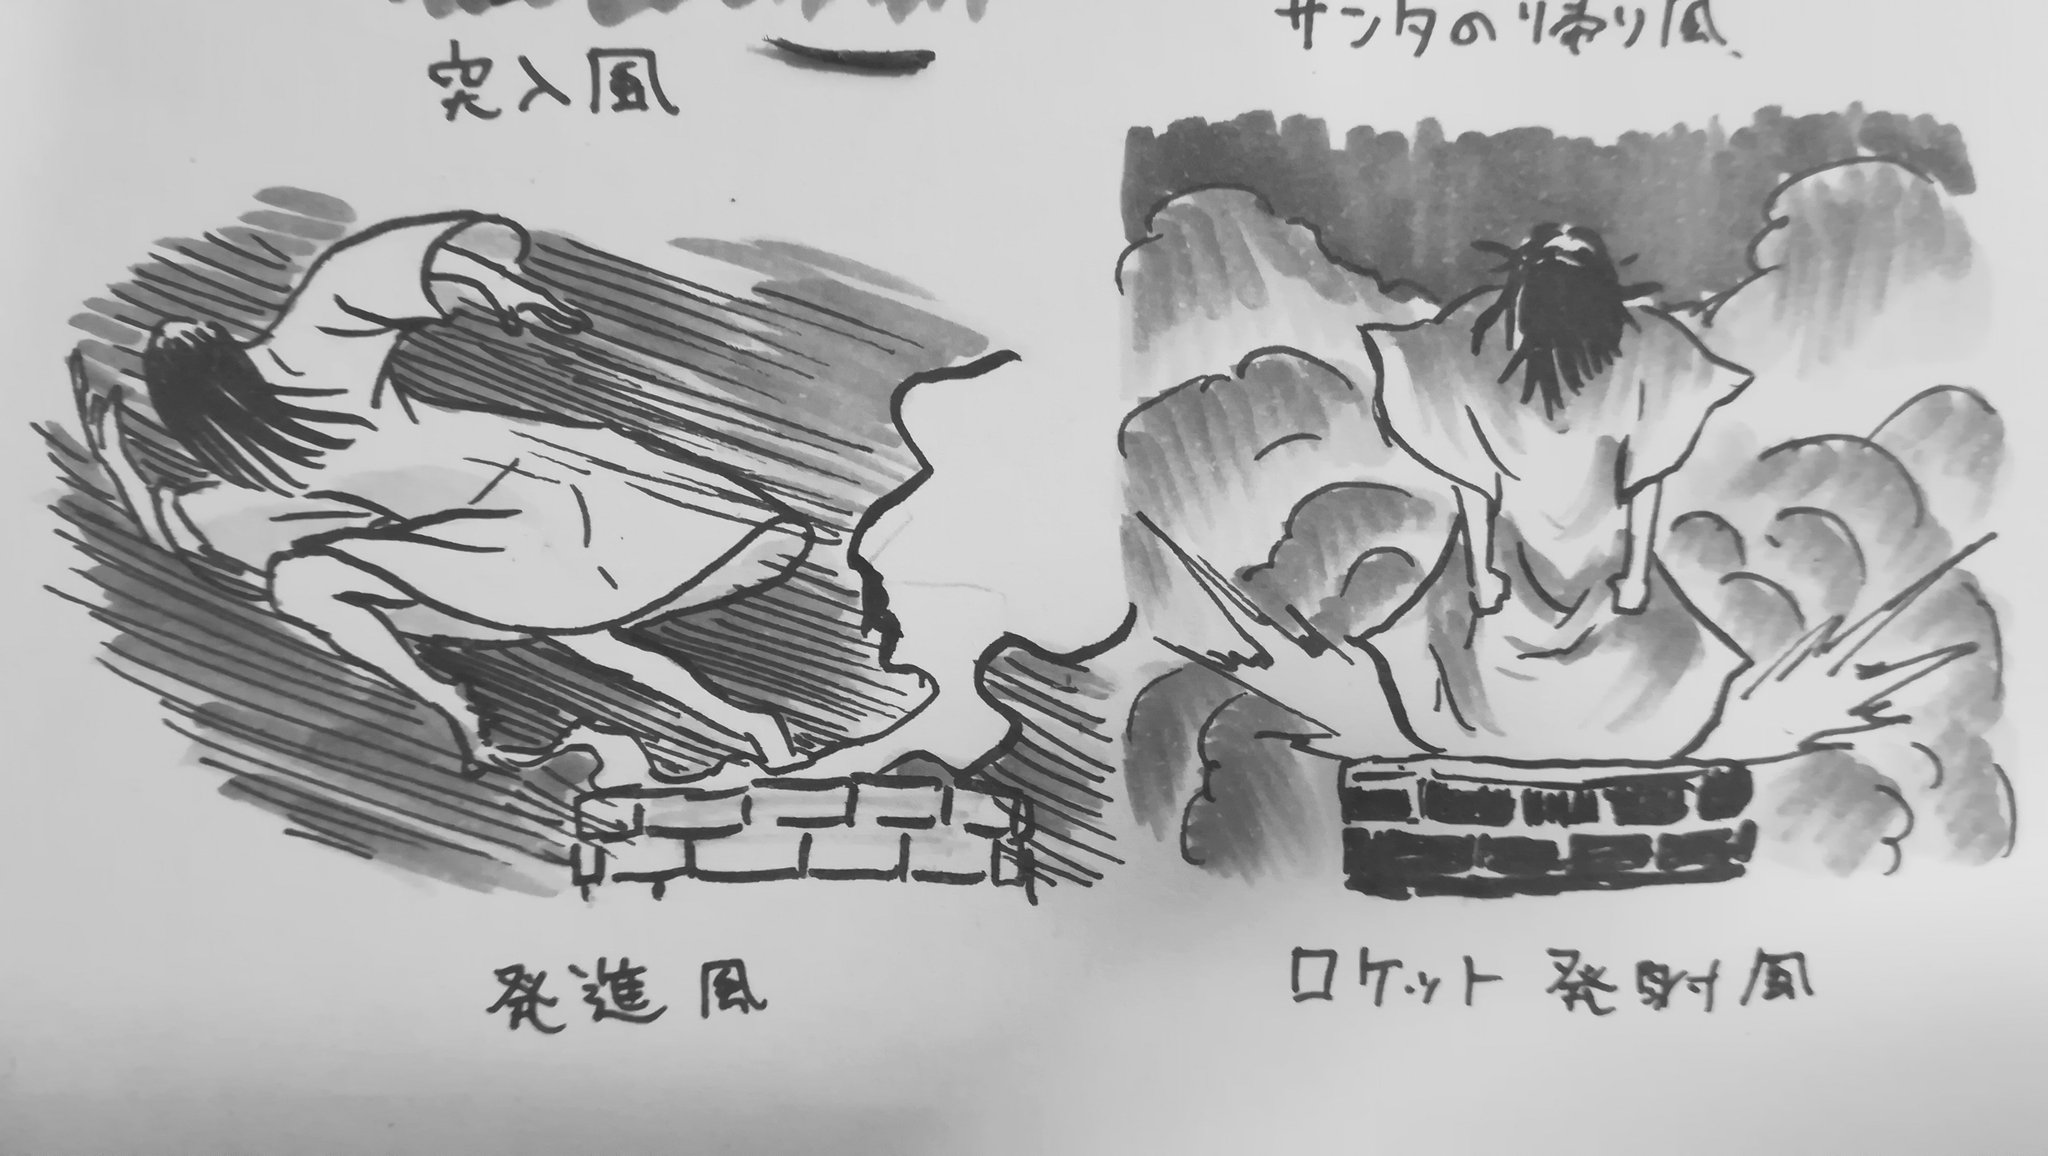 突入風
サンタの帰り風
発進風
ロケット発射風